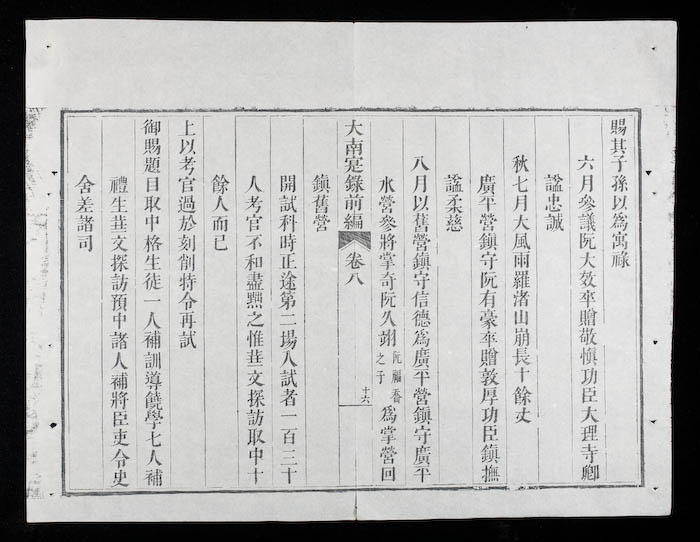 賜其子孫以為寓祿
六月參議阮大效卒贈敬愼功臣大理寺卿
諡忠誠
秋七月大風雨羅渚山崩長十餘丈
廣平營鎮守阮有豪卒贈敦厚功臣鎮撫
諡柔慈
八月以舊營鎮守信德爲廣平營鎮守廣平
水營參將掌奇阮久翊阮福香之子爲掌營回
大南寔錄前編 卷八 十六
鎮舊營
開試科時正途第二場入試者一百三十
人考官不和盡黜之惟華文探訪取中十
餘人而已
上以考官過於刻削特令再試
御賜題目取中格生徒一人補訓導饒學七人補
禮生華文探訪預中諸人補將臣吏令史
舍差諸司